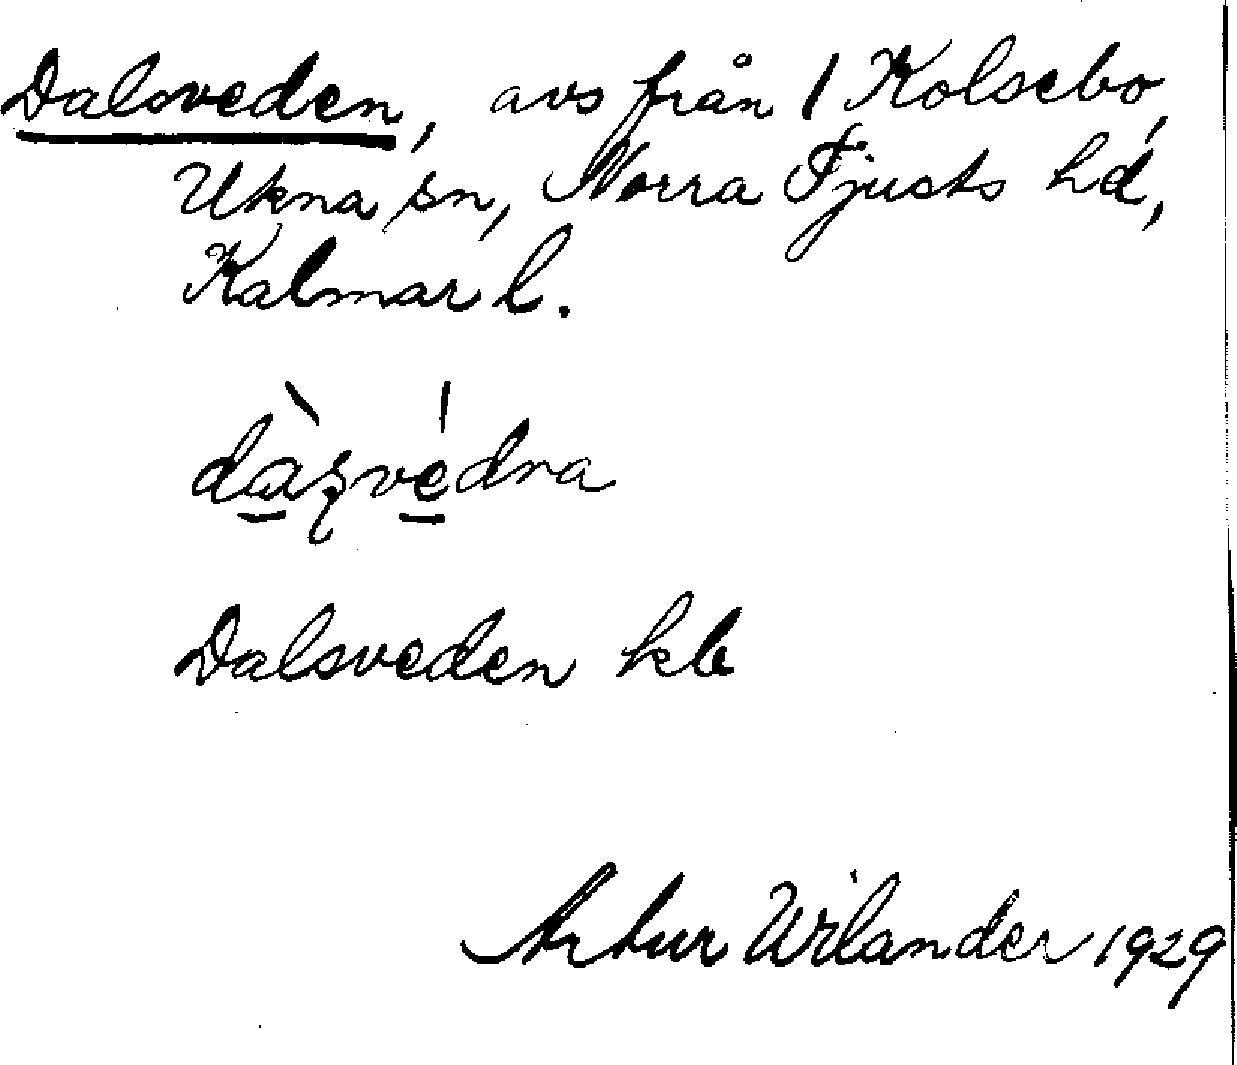 Dalsveden, avs från 1 Kolsebo,
Ukna sn, Norra Tjusts hd,
Kalmar l.
dàʂvédna
Dalsveden kb
Artur Wilander 1929